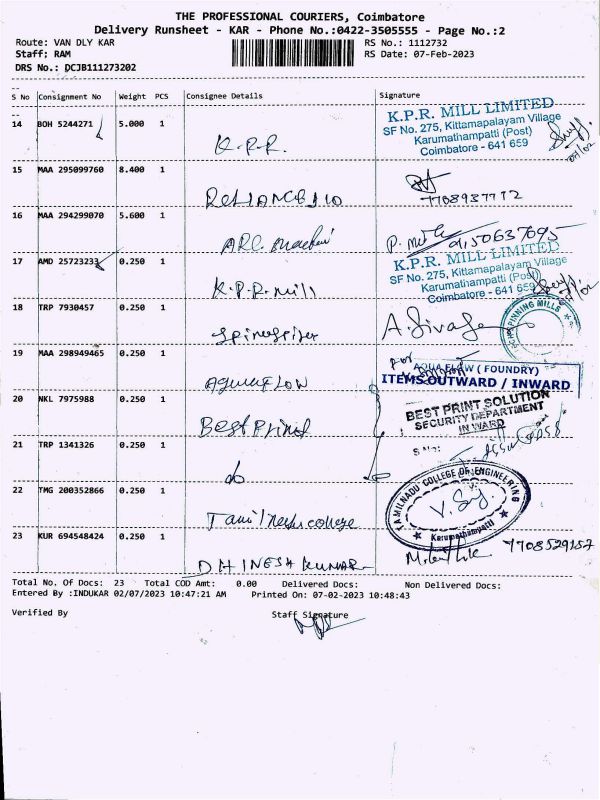 THE PROFESSIONAL COURIERS, Coimbatore
Delivery Runsheet - KAR - Phone No.:0422-3505555 - Page No.:2
Route: VAN DLY KAR
RS No.: 1112732
Staff; RAM
RS Date: 07-Feb-2023
DRS No.: DCJB111273202
S No Consignment No Weight PCS Consignee Details Signature
14 BOH 5244271 5.000 1 K.P.R.
K.P.R. MILL LIMITED
SF No. 275, Kittamapalayam Village
Karumathampatti (Post)
Coimbatore - 641 659
15 MAA 295099760 8.400 1 7708937772
16 MAA 294299070 5.600 1 ARC
P.
17 AMD 25723233 0.250 1 K.P.R. mill
K.P.R. MILL LIMITED
SF No. 275, Kittamapalayam Village
Karumathampatti (Post)
Coimbatore - 641 659
18 TRP 7930457 0.250 1
A. Siva
SPINNING MILLS
19 MAA 298949465 0.250 1 AQUAFLOW
for
AQUA FLOW ( FOUNDRY)
ITEMS OUTWARD / INWARD
20 NKL 7975988 0.250 1 Best Print
BEST PRINT SOLUTION
SECURITY DEPARTMENT
INWARD
21 TRP 1341326 0.250 1 do
S No:
22 TMG 200352866 0.250 1 Tamil college
TAMILNADU COLLEGE OF ENGINEERING
Karumathampatti
23 KUR 694548424 0.250 1 DHINESH KUMAR
7708529157
Total No. Of Docs: 23 Total COD Amt: 0.00 Delivered Docs: Non Delivered Docs:
Entered By :INDUKAR 02/07/2023 10:47:21 AM Printed On: 07-02-2023 10:48:43
Verified By Staff Signature